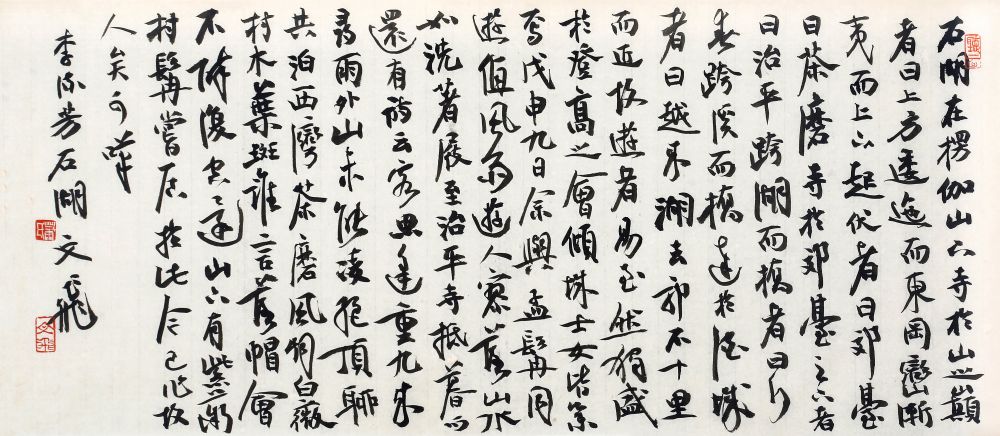 石湖在楞伽山下寺於山之巔
者曰上方逶迤而東岡巒漸
夷而上下起伏者曰郊臺
曰茶磨寺於郊臺之下者
曰治平跨湖而橋者曰行
春跨溪而橋達於酒城
者曰越來湖去郭不十里
而近故遊者易至然獨盛
於登高之會傾城士女皆集
焉戊申九日余與孟髯同
遊值風雨遊人寥落山水
如洗著屐至治平寺抵暮而
還有詩云客思逢重九來
尋雨外山未能凌絕頂聊
共泊西灣茶磨風烟白薇
村木葉斑誰言落帽會
不醉復空還山下有紫薇
村髯嘗居於此今已作故
人矣可嘆
李流芳石湖 文飛